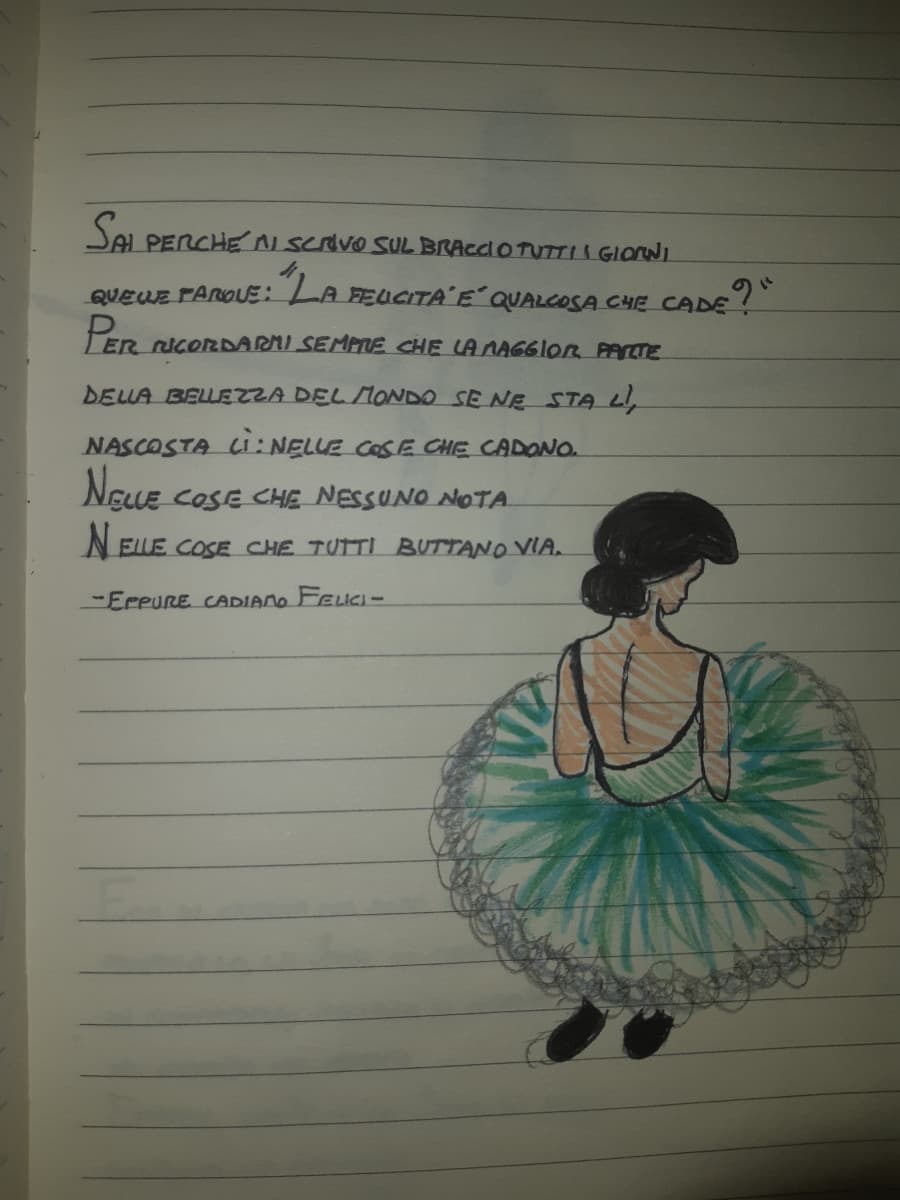 SAI PERCHÉ MI SCRIVO SUL BRACCIO TUTTI I GIORNI
QUELLE PAROLE: "LA FELICITA' E' QUALCOSA CHE CADE?"
PER RICORDARMI SEMPRE CHE LA MAGGIOR PARTE
DELLA BELLEZZA DEL MONDO SE NE STA LÌ,
NASCOSTA LÌ: NELLE COSE CHE CADONO.
NELLE COSE CHE NESSUNO NOTA
NELLE COSE CHE TUTTI BUTTANO VIA.
-EPPURE CADIAMO FELICI-